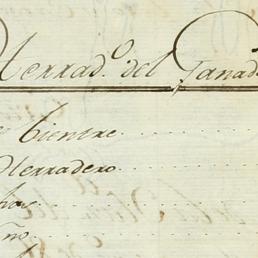 Herrad.º del Ganad
bientre
Herradero
has
ño